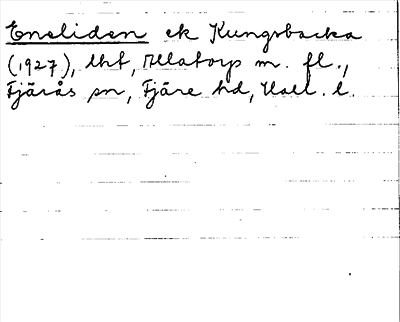 Eneliden ek Kungsbacka
(1927), lht, Ulatorp m. fl.,
Fjärås sn, Fjäre hd, Hall. l.